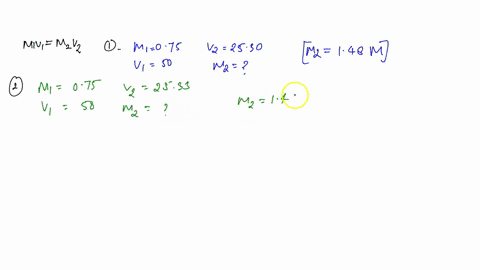 M1V1 = M2V2 ①- M1=0.75 V2=25.30 [M2 = 1.48 M]
V1 = 50 M2=?
② M1 = 0.75 V2 = 25.33
V1 = 50 M2 = ? M2 = 1.4